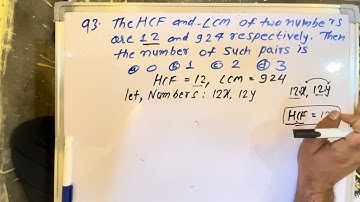 93. The HCF and LCM of two numbers
are 12 and 924 respectively. Then
the number of such pairs is
ⓐ 0 ⓑ 1 ⓒ 2 ⓓ 3
HCF = 12, LCM = 924
let, Numbers : 12x, 12y
12x, 12y
HCF =